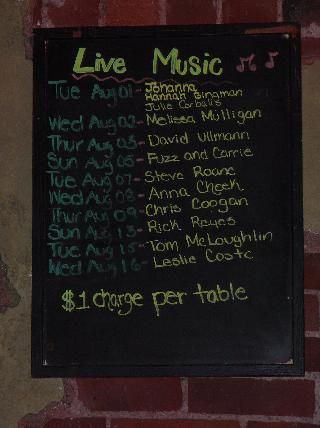 Live Music
Tue Aug 01- Johanna
Hannah Bingman
Julie Corbalis
Wed Aug 02- Melissa Mulligan
Thur Aug 03- David Ullmann
Sun Aug 05- Fuzz and Carrie
Tue Aug 07- Steve Roane
Wed Aug 08- Anna Cheek
Thur Aug 09- Chris Coogan
Sun Aug 13- Rick Reyes
Tue Aug 15- Tom McLoughlin
Wed Aug 16- Leslie Costa
$1 charge per table